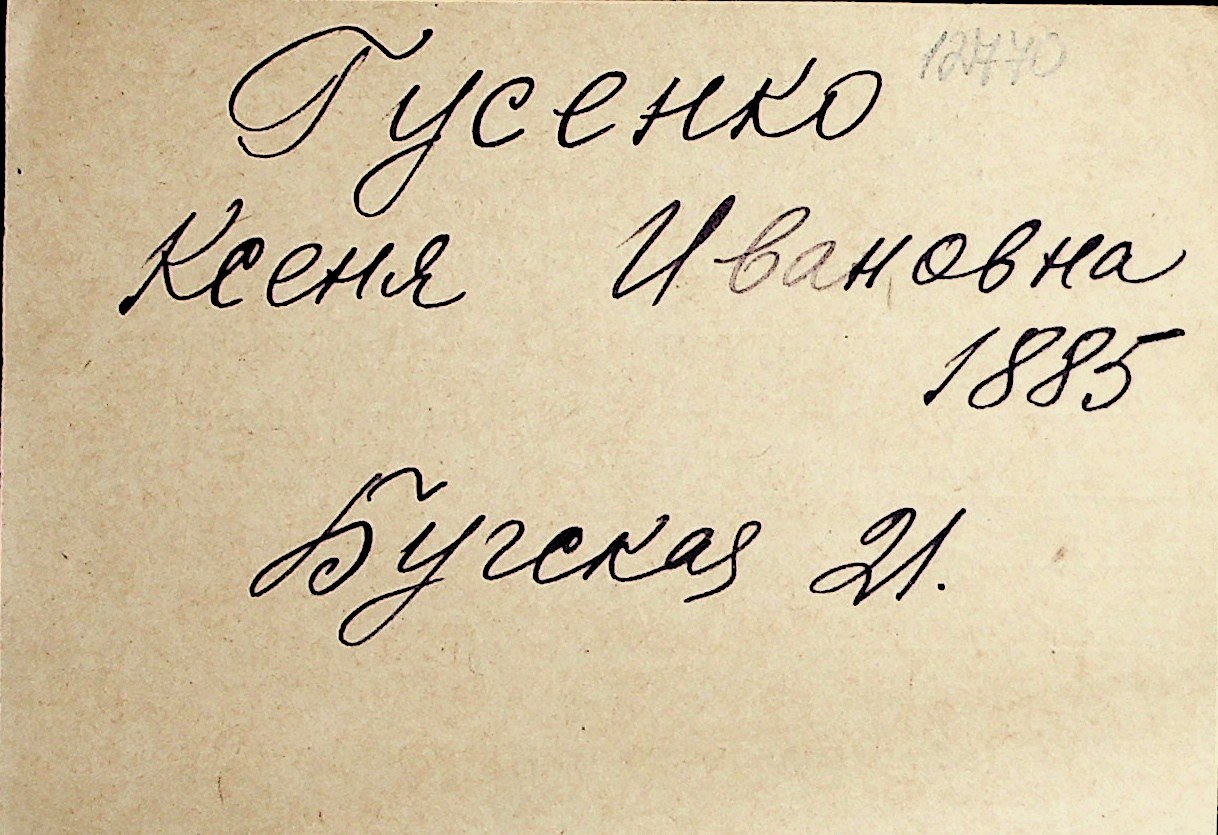 Гусенко
Ксеня Ивановна
1885
Бугская 21.